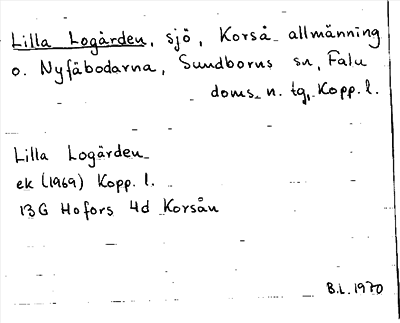 Lilla Logården, sjö, Korså allmänning
o. Nyfäbodarna, Sundborns sn, Falu
doms. n. tg, Kopp. l.
Lilla Logården
ek (1969) Kopp. l.
13G Hofors 4d Korsån
B.L. 1970